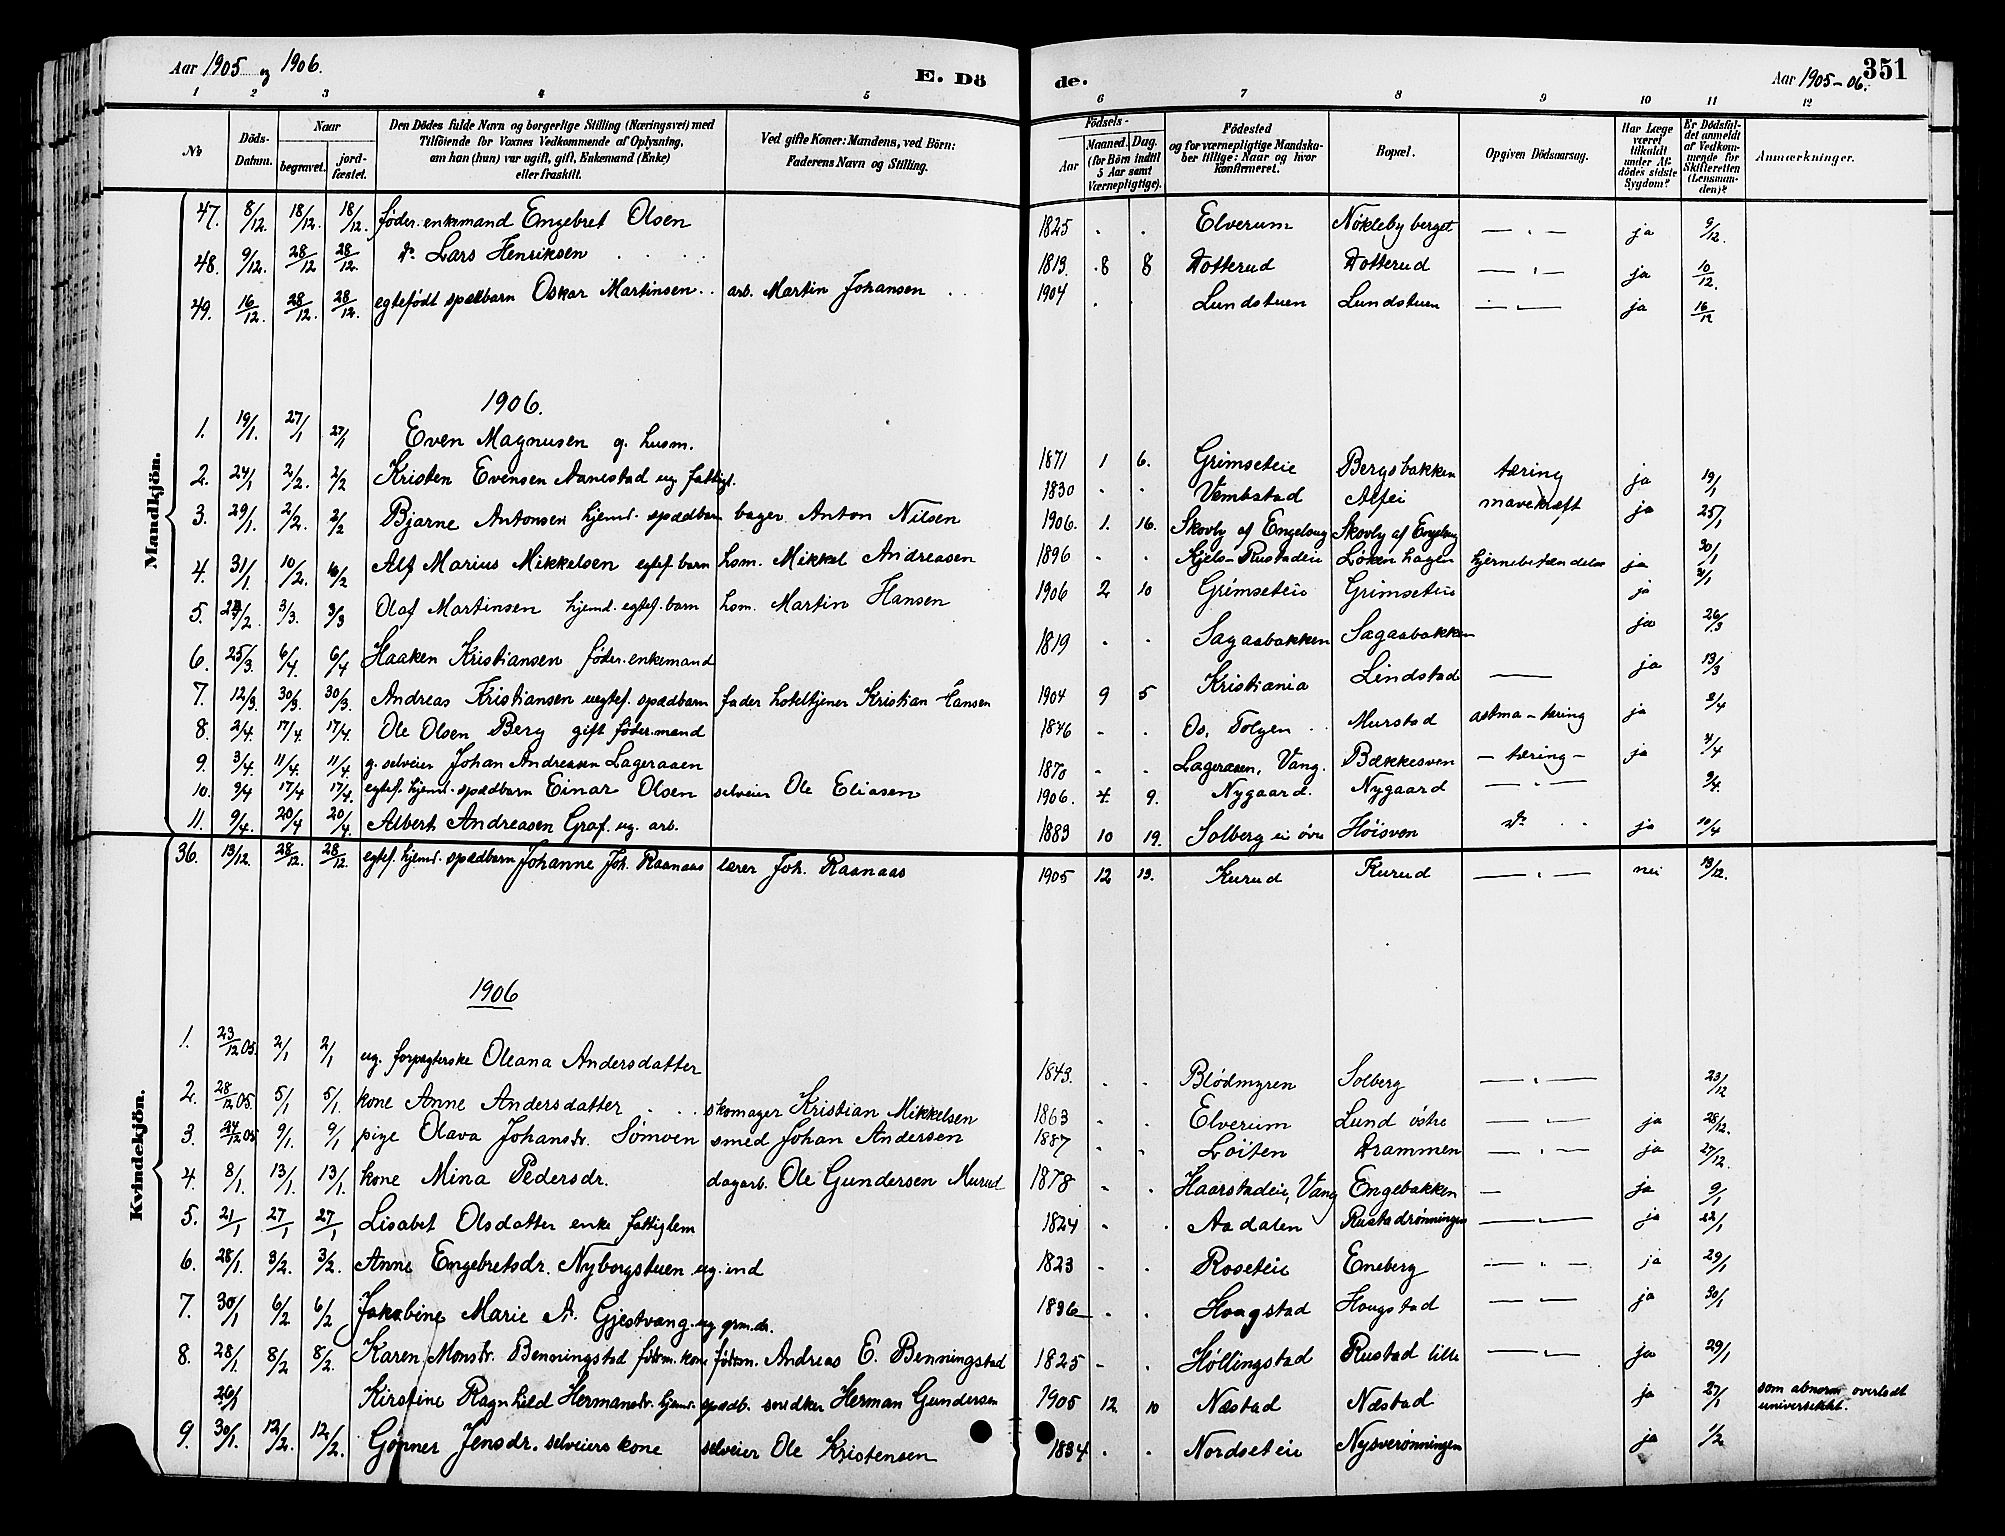 Aar 1905 og 1906.
E. Dö
de.
Aar 1905-06.
351
1 2 3 4 5 6 7 8 9 10 11 12
No
Döds-Datum.
Naar
begravet.
jord-fæstet.
Den Dödes fulde Navn og borgerlige Stilling (Næringsvei) med
Tilföiende for Voxnes Vedkommende af Oplysning,
om han (hun) var ugift, gift, Enkemand (Enke)
eller fraskilt.
Ved gifte Koner: Mandens, ved Börn:
Faderens Navn og Stilling.
Födsels-
Aar
Maaned. Dag.
(for Börn indtil
5 Aar samt
Værnepligtige).
Födested
og for værnepligtige Mandska-
ber tillige: Naar og hvor
konfirmeret.
Bopæl.
Opgiven Dödsaarsag.
Har Læge
været
tilkaldt
under Af-
dödes sidste
Sygdom?
Er Dödsfal-
det anmeldt
af Vedkom-
mende for
Skifteretten
(Lensman-
den)?
Anmærkninger.
Mandkjön.
47. 8/12. 18/12. 18/12. föder. enkemand Engebret Olsen 1825 . . Elverum Nökleby berget — . — ja 9/12.
48. 9/12. 28/12 28/12. do Lars Henriksen 1813. 8 8 Dotterud Dotterud — . — ja 10/12.
49. 16/12. 28/12. 28/12. egtefödt spædbarn Oskar Martinsen arb. Martin Johansen 1904 . . Lundstuen Lundstuen — . — ja 16/12
1906.
1. 19/1. 27/1 27/1 Even Magnusen g. husm. 1871 1 6. Grimseteie Bergsbakken tæring ja 19/1
2. 24/1 2/2. 2/2 Kristen Evensen Aanestad ug. fattigl. 1830 . . Vembstad Alfei mavekræft ja 25/1
3. 29/1. 2/2. 2/2 Bjarne Antonsen hjemd. spædbarn bager Anton Nilsen 1906. 1. 16. Skovly af Engelaug Skovly af Engelaug 30/1
4. 31/1 10/2. 10/2 Alf Marius Mikkelsen egtef. barn hsm. Mikkel Andreasen 1896 . . Kjels-Rustadeie Löken hagen hjernebetændelse ja
5. 3/3. 3/3 Olaf Martinsen hjemd. egtef. barn hsm. Martin Hansen 1906 2 10 Grimseteie Grimseteie ja
6. 25/3. 6/4 6/4 Haaken Kristiansen föder. enkemand 1819 . . Sagaabakken Sagaabakken ja 26/3
7. 12/3. 30/3. 30/3. Andreas Kristiansen uegtef. spædbarn fader hoteltjener Kristian Hansen 1904 9 5 Kristiania Lindstad — ja 13/3
8. 2/4. 17/4. 17/4. Ole Olsen Berg gift föder. mand 1846 . . Os, Tolgen Murstad astma - tæring ja 2/4
9. 3/4. 11/4. 11/4. g. selveier Johan Andreasen Lageraaen 1870 . . Lageraaen, Vang. Bækkesven - tæring - ja 4/4
10. 9/4 17/4 17/4. egtef. hjemd. spædbarn Einar Olsen selveier Ole Eliasen 1906. 4. 9. Nygaard. Nygaard — . — 9/4.
11. 9/4. 20/4 20/4. Albert Andreasen Graf. ug. arb. 1883 10 19. Solberg ei övre Höisven do ja 10/4
Kvindekjön.
36. 13/12. 28/12. 28/12. egtef. hjemd. spædbarn Johanne Joh. Raanaas lærer Joh. Raanaas 1905 12 13. Kurud Kurud — . — nei 13/12.
1906
1. 23/12 05. 2/1 2/1 ug. forpagterske Oleana Andersdatter 1843. . . Blödmyren Solberg — . — 23/12
2. 28/12 05. 5/1 5/1. kone Anne Andersdatter skomager Kristian Mikkelsen 1863 . . Elverum Lund östre — . — ja 28/12.
3. 24/12 05 9/1. 9/1 pige Olava Johansdr. Sömoen smed Johan Andersen 1887 . . Löiten Drammen — . — ja 27/12.
4. 8/1. 13/1. 13/1. kone Mina Pedersdr. dagarb. Ole Gundersen Murud 1878 . . Haarstadeie, Vang Engebakken — ja 9/1
5. 21/1 27/1 27/1 Lisabet Olsdatter enke fattiglem 1824 . . Aadalen Rustadrönningen — . — ja 22/1
6. 28/1. 3/2. 3/2. Anne Engebretsdr. Nyborgstuen ug. ind 1823 . . Roseteie Eneberg — . — ja 29/1
7. 30/1 6/2 6/2 Jakobine Marie A. Gjestvang. ug grm. dr. 1836 . . Hougstad Hougstad — — ja 30/1
8. 28/1. 8/2 8/2. Karen Monsdr. Benningstad födrm. kone födrm. Andreas E. Benningstad 1825 . . Höllingstad Rustad lille — — ja 29/1
26/1 Kirstine Ragnhild Hermansdr. hjemd. spædb. snedker Herman Gundersen 1905 12 10 Næstad Næstad ja 27/1 som abnorm overladt
universitet.
9. 30/1. 12/2. 12/2. Gonner Jensdr. selveiers kone selveier Ole Kristensen 1834 . . Nordseteie Nysverönningen ja 1/2